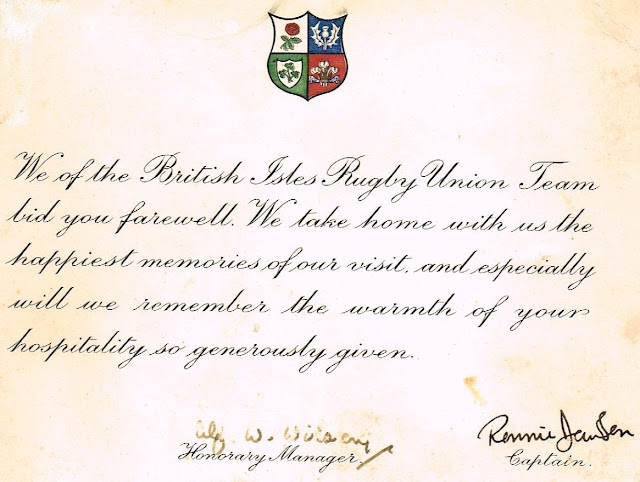 We of the British Isles Rugby Union Team
bid you farewell. We take home with us the
happiest memories of our visit, and especially
will we remember the warmth of your
hospitality so generously given.
Alf. W. Wilson
Honorary Manager.
Ronnie Dawson
Captain.